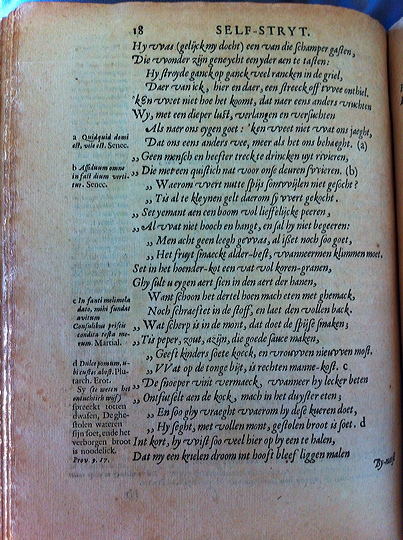 18 SELF-STRYT.
Hy vvas (gelijck my docht) een van die schamper gasten,
Die vvonder zijn geneycht eenyder aen te tasten:
Hy stroyde ganck op ganck veel rancken in de griel,
Daer van ick, hier en daer, een streeck oft tvvee onthiel.
'ken vveet niet hoe het koomt, dat naer eens anders vruchten
Wy, met een dieper lust, verlangen en versuchten
Als naer ons eygen goet: 'ken vveet niet vvat ons jaeght,
Dat ons eens anders vvee, meer als het ons behaeght. (a)
„ Geen mensch en heefter treck te drincken uyt rivieren,
„ Die met een quistich nat voor onse deuren svvieren. (b)
„ Waerom vvert nutte spijs somvvijlen niet gesocht?
„ Tis al te kleynen gelt daerom sy vvert gekocht.
„ Set yemant aen een boom vol lieffelijcke peeren,
„ Al vvat niet hooch en hangt, en sal hy niet begeeren:
„ Men acht geen leegh gevvas, al ißet noch soo goet,
„ Het fruyt smaeckt alder-best, vvanneermen klimmen moet.
Set in het hoender-kot een vat vol koren-granen,
Ghy sult u eygen aert sien in den aert der hanen,
Want schoon het dertel hoen mach eten met ghemack,
Noch schraeft et in de stoff, en laet den vollen back.
„ Wat scherp is in de mont, dat doet de spijse smaken;
„ Tis peper, zout, azijn, die goede sauce maken,
„ Geeft kinders soete koeck, en vrouvven nieuvven most.
„ VVat op de tonge bijt, is rechten manne-kost. c
„ De snoeper vint vermaeck, vvanneer hy lecker beten
„ Ontfutselt aen de kock, mach in het duyster eten;
„ En soo ghy vraeght vvaerom hy dese kueren doet,
„ Hy seght, met vollen mont, gestolen broot is soet. d
Int kort, hy vvist soo veel hier op by een te halen,
Dat my een krielen droom int hooft bleef liggen malen
a Quidquid domi
est, vile est. Senec.
b Assiduum omne
in fastidium verti-
tur. Senec.
c Infausti melimela
dato, mihi fundat
avitum
Consulibus priscis
condita testa me-
rum. Martial.
d Dulce pomum,
Plu-
tarch. Erot.
Sy (te weten het
ontuchtich wijf)
spreeckt totten
dwasen, De ghe-
stolen wateren
zijn soet, ende het
verborgen broot
is noodelick.
Prov. 9. 17.